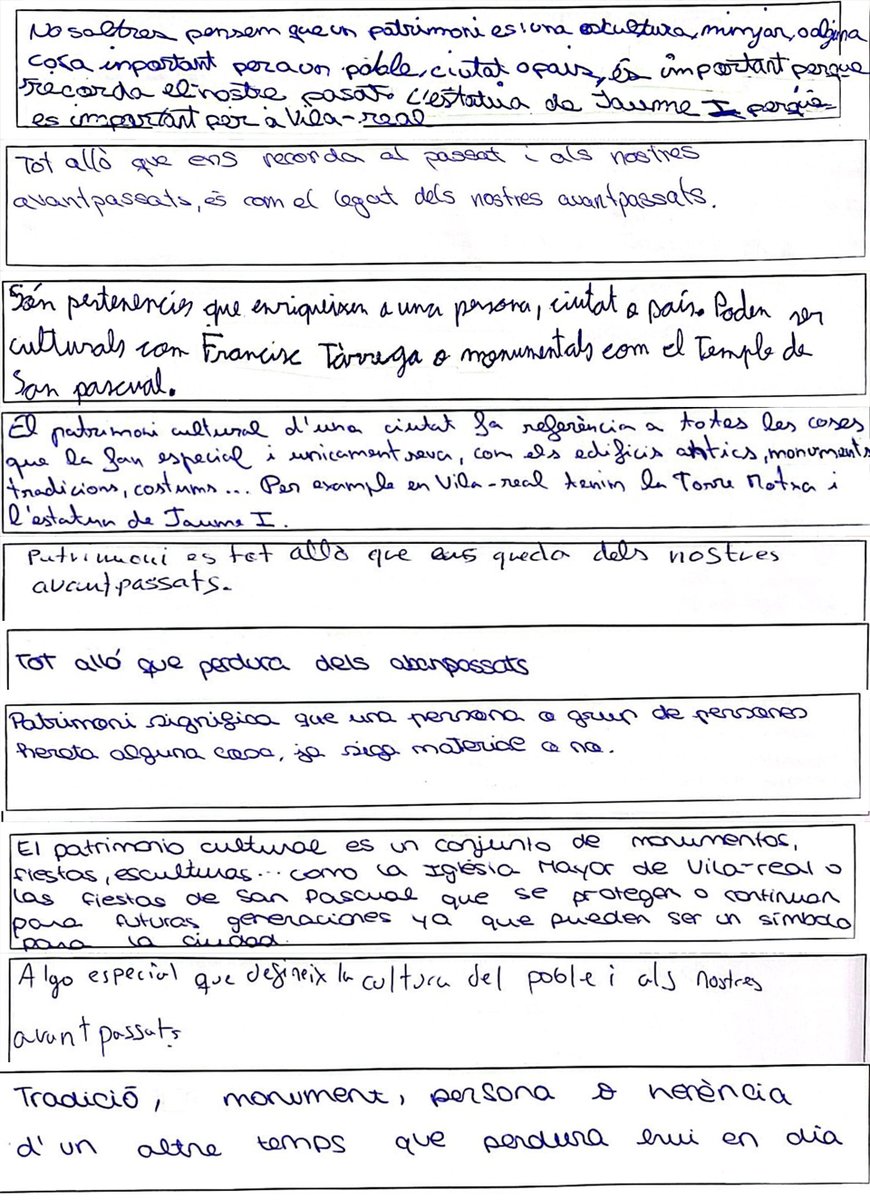 Nosaltres pensem que un patrimoni es una escultura, minjar, o alguna
cosa inportant per a un poble, ciutat o pais, és important perque
recorda el nostre pasat. L'estatua de Jaume I perque
es important per a Vila-real
Tot allò que ens recorda al passat i als nostres
avantpassats, és com el legat dels nostres avantpassats.
Són pertenencies que enriqueixen a una persona, ciutat o país. Poden ser
culturals com Francisc Tàrrega o monumentals com el Temple de
San pascual.
El patrimoni cultural d'una ciutat fa referència a totes les coses
que la fan especial i unicament seva, com els edificis antics, monuments
tradicions, costums... Per example en Vila-real tenim la Torre Motxa i
l'estatua de Jaume I.
Patrimoni es tot allò que ens queda dels nostres
avantpassats.
Tot alló que perdura dels abanpassats
Patrimoni significa que una persona o grup de persones
hereta alguna cosa, ja siga material o no.
El patrimonio cultural es un conjunto de monumentos,
fiestas, esculturas... como la Iglésia Mayor de Vila-real o
las fiestas de San Pascual que se protegen o continuan
para futuras generaciones ya que pueden ser un símbolo
para la ciudad.
Algo especial que defineix la cultura del poble i als nostres
avantpassats
Tradició, monument, persona o herència
d'un altre temps que perdura hui en dia